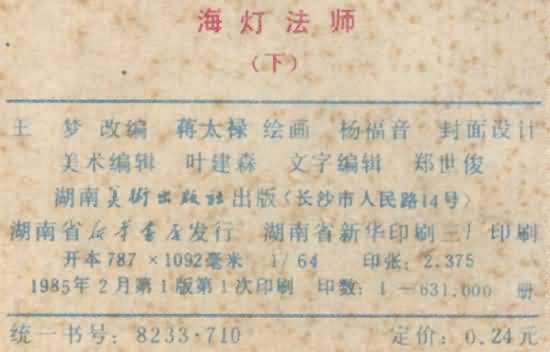 海灯法师
(下)
土 梦 改编 蒋太禄 绘画 杨福音 封面设计
美术编辑 叶建森 文字编辑 郑世俊
湖南美術出版社出版〈长沙市人民路14号〉
湖南省新华书店发行 湖南省新华印刷三厂印刷
开本787×1092毫米 1/64 印张：2.375
1985年2月第1版第1次印刷 印数：1—631,000 册
统一书号：8233·710 定价：0.24元